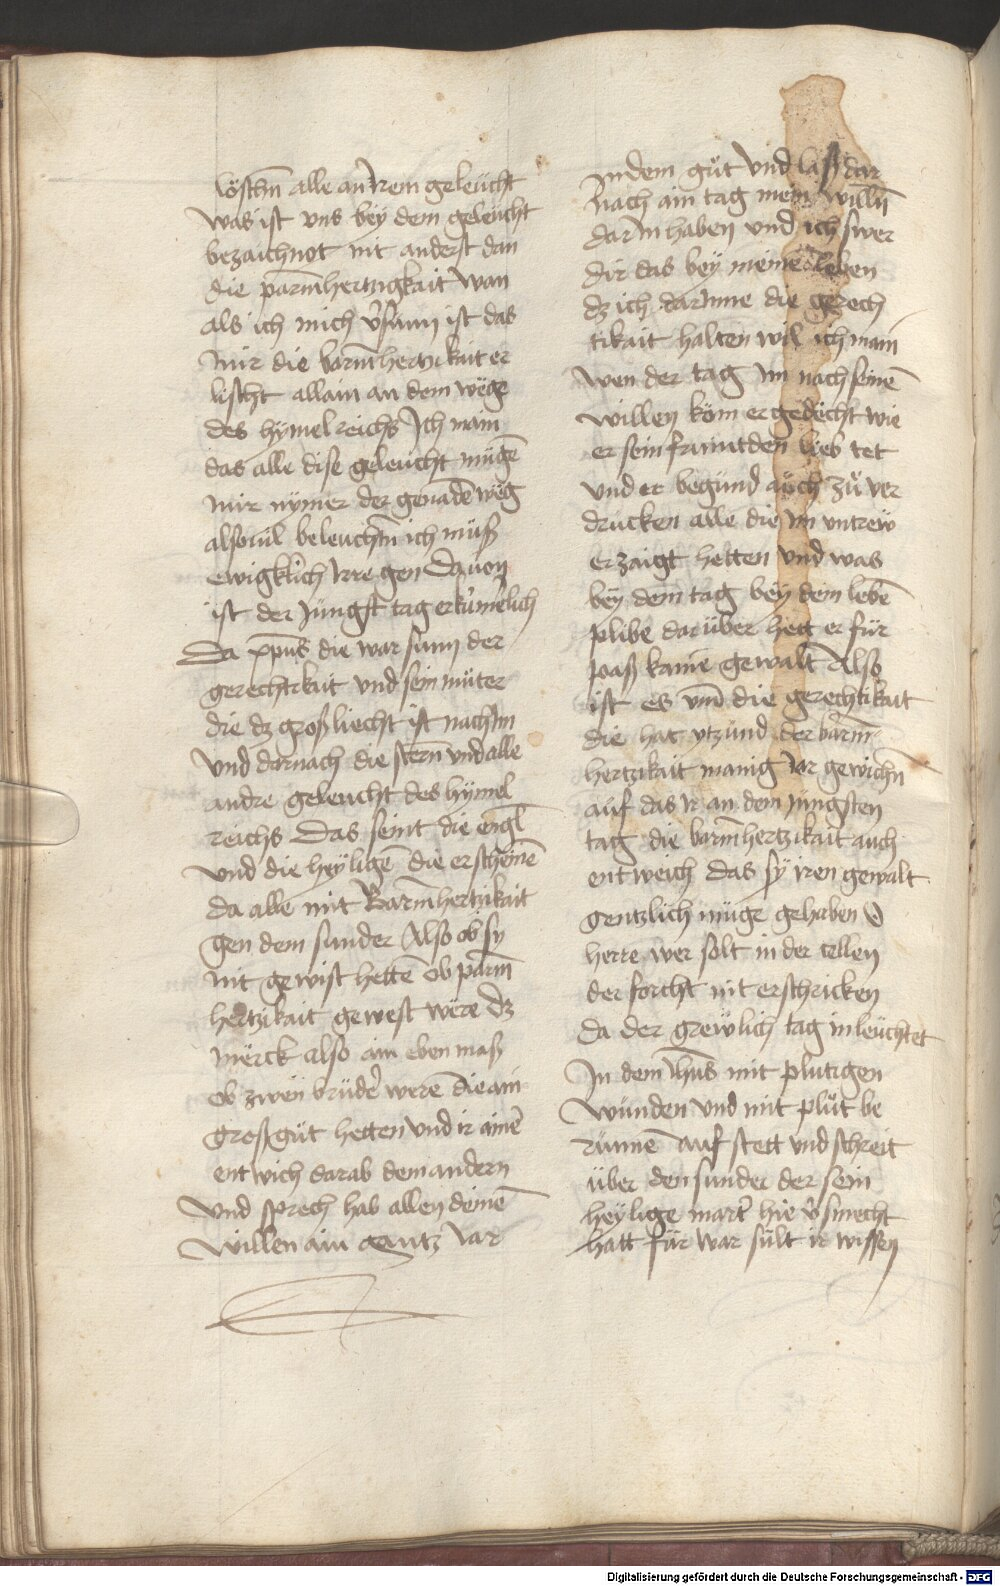 löschn̄ alle an irem geleücht
was ist vns beÿ dem geleücht
bezaichnot nit anderst dan
die parm̄hertzigkait wan
als ich mich v̉sünn ist das
mir die barm̄hertzikait er
lischt allain an dem wege
des hÿmelreichs Ich main
das alle dise geleücht mügē
mir nÿmer der genadē weg
alsouil beleuchtn̄ ich müß
ewigklich irre gen Dauon
ist der Jüngst tag erkumēlich
Da xp̄us die war sunn der
gerechtikait vnd sein müter
die dz groß liecht ist nach im
vnd dernach die stern vnd alle
andre geleucht des hÿmel
reichs Das seint die engl̄
vnd die heÿligē die erscheinē
da alle mit Barm̄hertzikait
gen dem sunder Also ob sy
nit gewist hettē ob parm̄
hertzikait gewest were dz
mërck also ain eben maß
ob zwen brüder̉ werē die ain
groß güt hetten vnd ir ainer̉
entwich darab dem andern
vnd sprech hab allen deinē
willen ain gantz Jar
In dem güt vnd laß dar
nach ain tag mein willn̄
darin haben vnd ich swer
dir das beÿ meinē leben
dz ich darinne die gerech
tikait halten wil ich main
wen der tag im nach seinē
willen köm er gedecht wie
er sein frauntden lieb tet
vnd er begünd auch zü ver
drucken alle die im vntrew
erzaigt hetten vnd was
beÿ dem tag beÿ dem lebē
plibe darüber hett er für
paß kainē gewalt Also
ist es vm̄ die gerechtikait
die hat ytzund der barm̄
hertzikait manig Jar gewichn̄
auf das ir an dem jüngsten
tag die barm̄hertzikait auch
entweich das sÿ iren gewalt
gentzlich müge gehaben O
herre wer solt in der cellen
der forcht nit erschricken
da der grewlich tag inleüchtet
In dem ih̄us mit plutigen
wunden vnd mit plüt be
runnē auf stett vnd schreit
über den sunder der sein
heÿlige marter̉ hie v̉smecht
hatt für war sült ir wissen
Digitalisierung gefördert durch die Deutsche Forschungsgemeinschaft - DFG